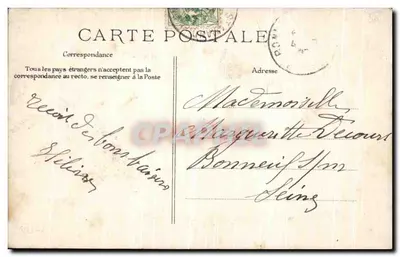 CARTE POSTALE
Correspondance
Tous les pays étrangers n'acceptent pas la
correspondance au recto, se renseigner à la Poste
Adresse
reçoit des bons baisers
Mademoiselle
Marguerite Decourt
Bonneuil s/m
Seine